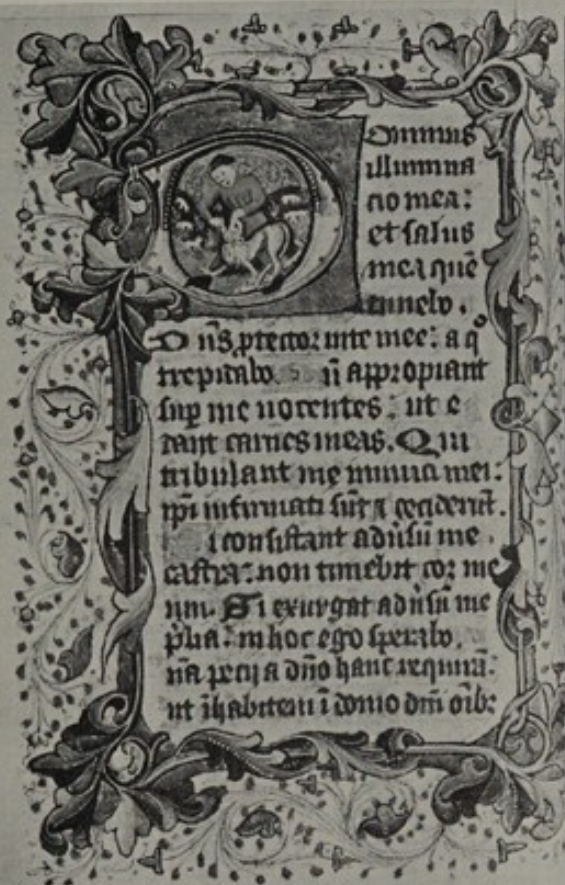 Dominus
illumina
cio mea:
et salus
mea quē
timebo.
D ns̄ ptector uite mee: a q°
trepidabo. ū appropiant
sup me nocentes: ut e
dant carnes meas. Qui
tribulant me inimici mei:
ip̄i infirmati sūt ⁊ ceciderūt.
i consistant adūsū me
castra: non timebit cor me
um. Si exurgat adūsū me
p̄lia: in hoc ego sperabo.
nā pecij a dn̄o hanc requirā:
ut īhabitem ī domo dn̄i oīb: